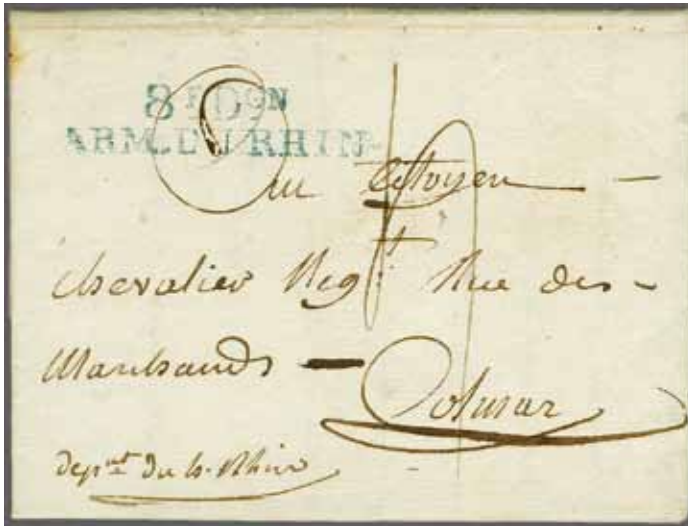 8E DON
ARM. DU RHIN
Au Citoyen —
Chevalier Negt. Rue des
Marchands —
Colmar
Depmt du h. Rhin